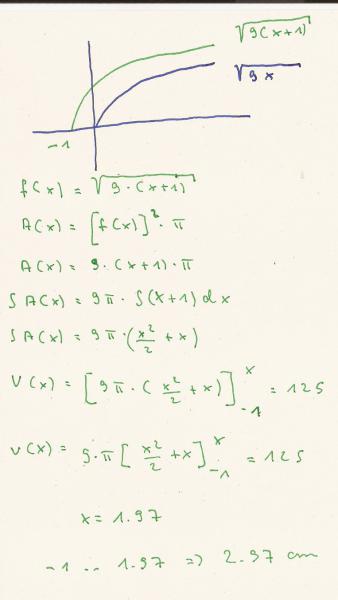 √9(x+1)
√9x
-1
f(x) = √9·(x+1)
A(x) = [f(x)]²·π
A(x) = 9·(x+1)·π
∫A(x) = 9π·∫(x+1)dx
∫A(x) = 9π·(x²/2 + x)
V(x) = [9π·(x²/2 + x)]ˣ₋₁ = 125
V(x) = 9·π[x²/2 + x]ˣ₋₁ = 125
x = 1.97
-1 .. 1.97 => 2.97 cm